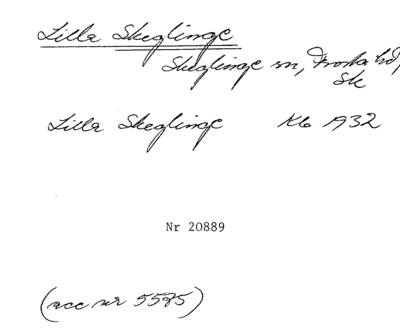 Lilla Skeglinge
Skeglinge sn, Frosta hd,
Sk
Lilla Skeglinge Kb A32
Nr 20889
(acc nr 5525)